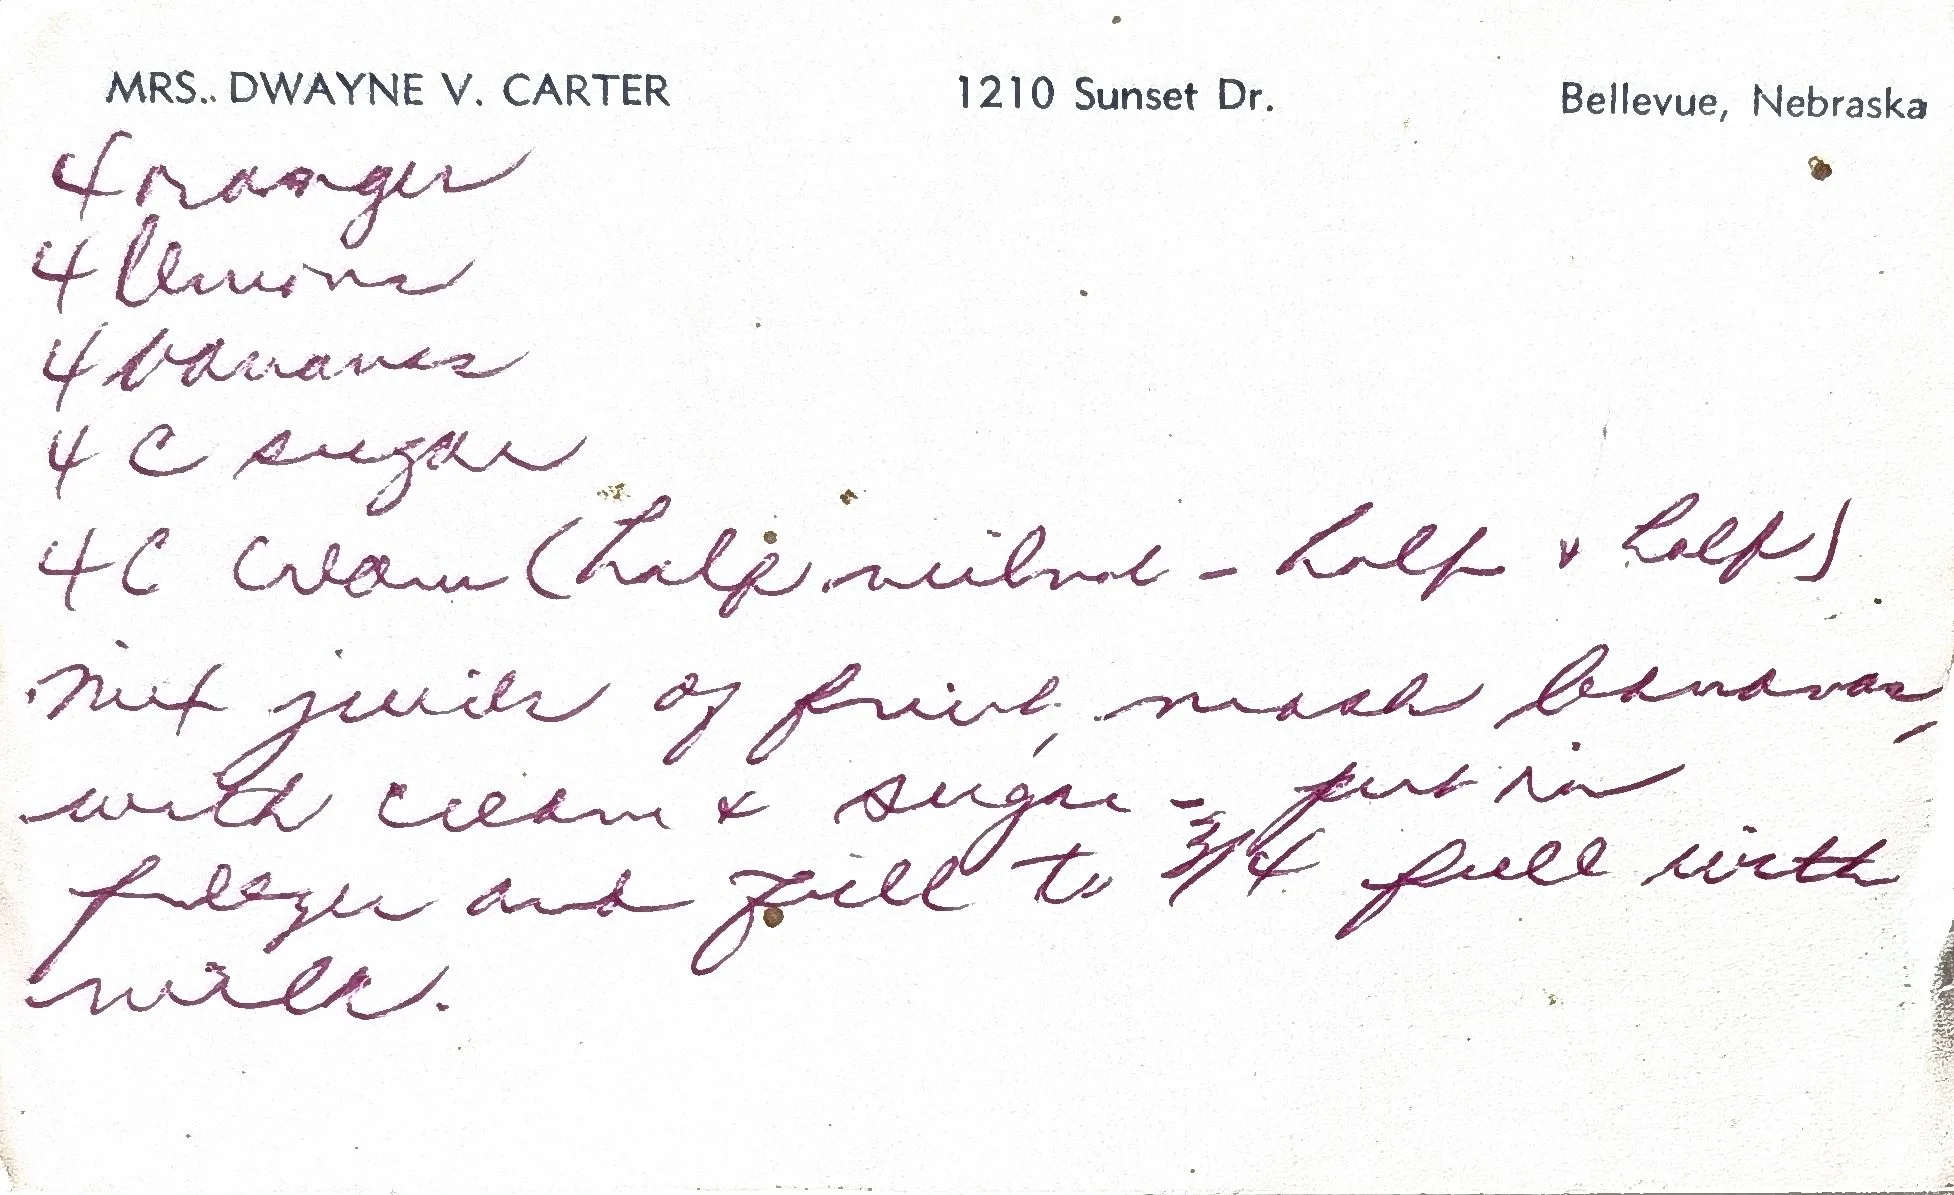 MRS. DWAYNE V. CARTER 1210 Sunset Dr. Bellevue, Nebraska
4 oranges
4 lemons
4 bananas
4 C sugar
4 C cream (half - half & half)
Mix juice of fruit, mash bananas,
with cream & sugar - put in
freezer and fill to 3/4 full with
milk.